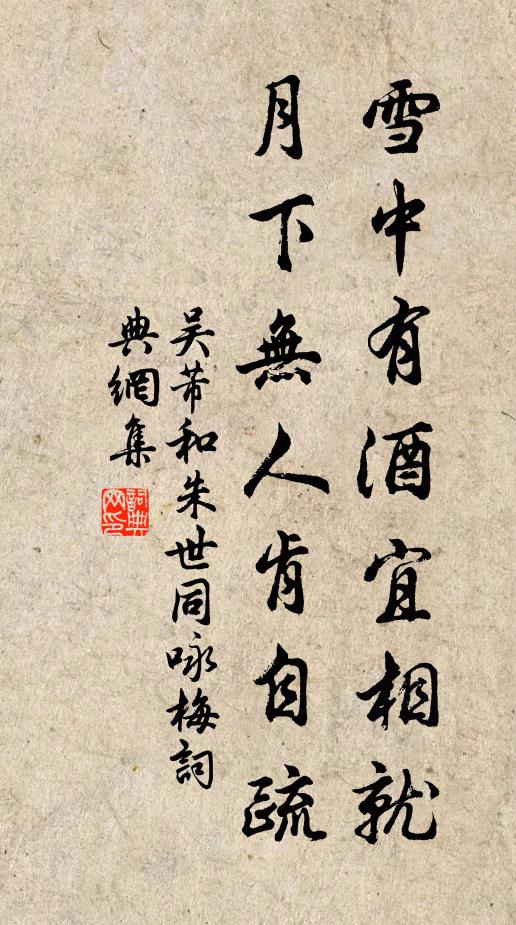 雪中有酒宜相就
月下無人肯自疏
吴芾和朱世同咏梅詞
典網集
詞典
网印